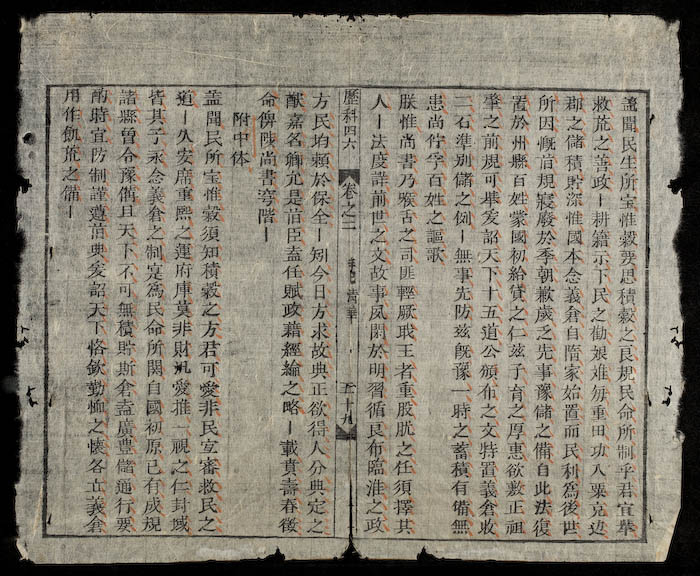 盖聞民生所宝惟穀要思積穀之良規民命所制乎君宜举
救荒之善政丨耕籍示下民之勧娘难毎重田功入粟克边
郡之儲積貯深惟國本念義倉自隋家始置而民利為後世
所因慨前規寝廢於季朝歉歲之先事豫儲之備自此法復
置於州縣百姓蒙國初給貸之仁兹子育之厚惠欲敷正祖
肇之前規可举爰詔天下十五道公頒布之文特置義倉收
二石準别儲之例丨無事先防兹既豫一時之蓄積有備無
患尚佇孚百姓之謳歌
朕惟尚書乃喉舌之司匪輕厥职王者重股肱之任須擇其
人丨法度詳前世之文故事夙閑於明習循良布臨淮之政
歷科四六 卷之二 五十九
方民均頼於保全丨矧今日方求故典正欲得人分典定之
猷嘉名卿尤是前臣盖任賦政藉經綸之略丨載賁壽春徵
命俾陟尚書穹階丨
附中体
盖聞民所宝惟穀須知積穀之方君可愛非民宜審救民之
道丨久安席重熙之運府庫莫非財汎愛推一視之仁封域
皆其子永念義倉之制寔為民命所関自國初原已有成規
諸縣曽令豫備且天下不可無積貯斯倉盍廣豊儲通行要
酌時宜防制謹遵前典爰詔天下恪欽勤恤之懷各立義倉
用作飢荒之備丨